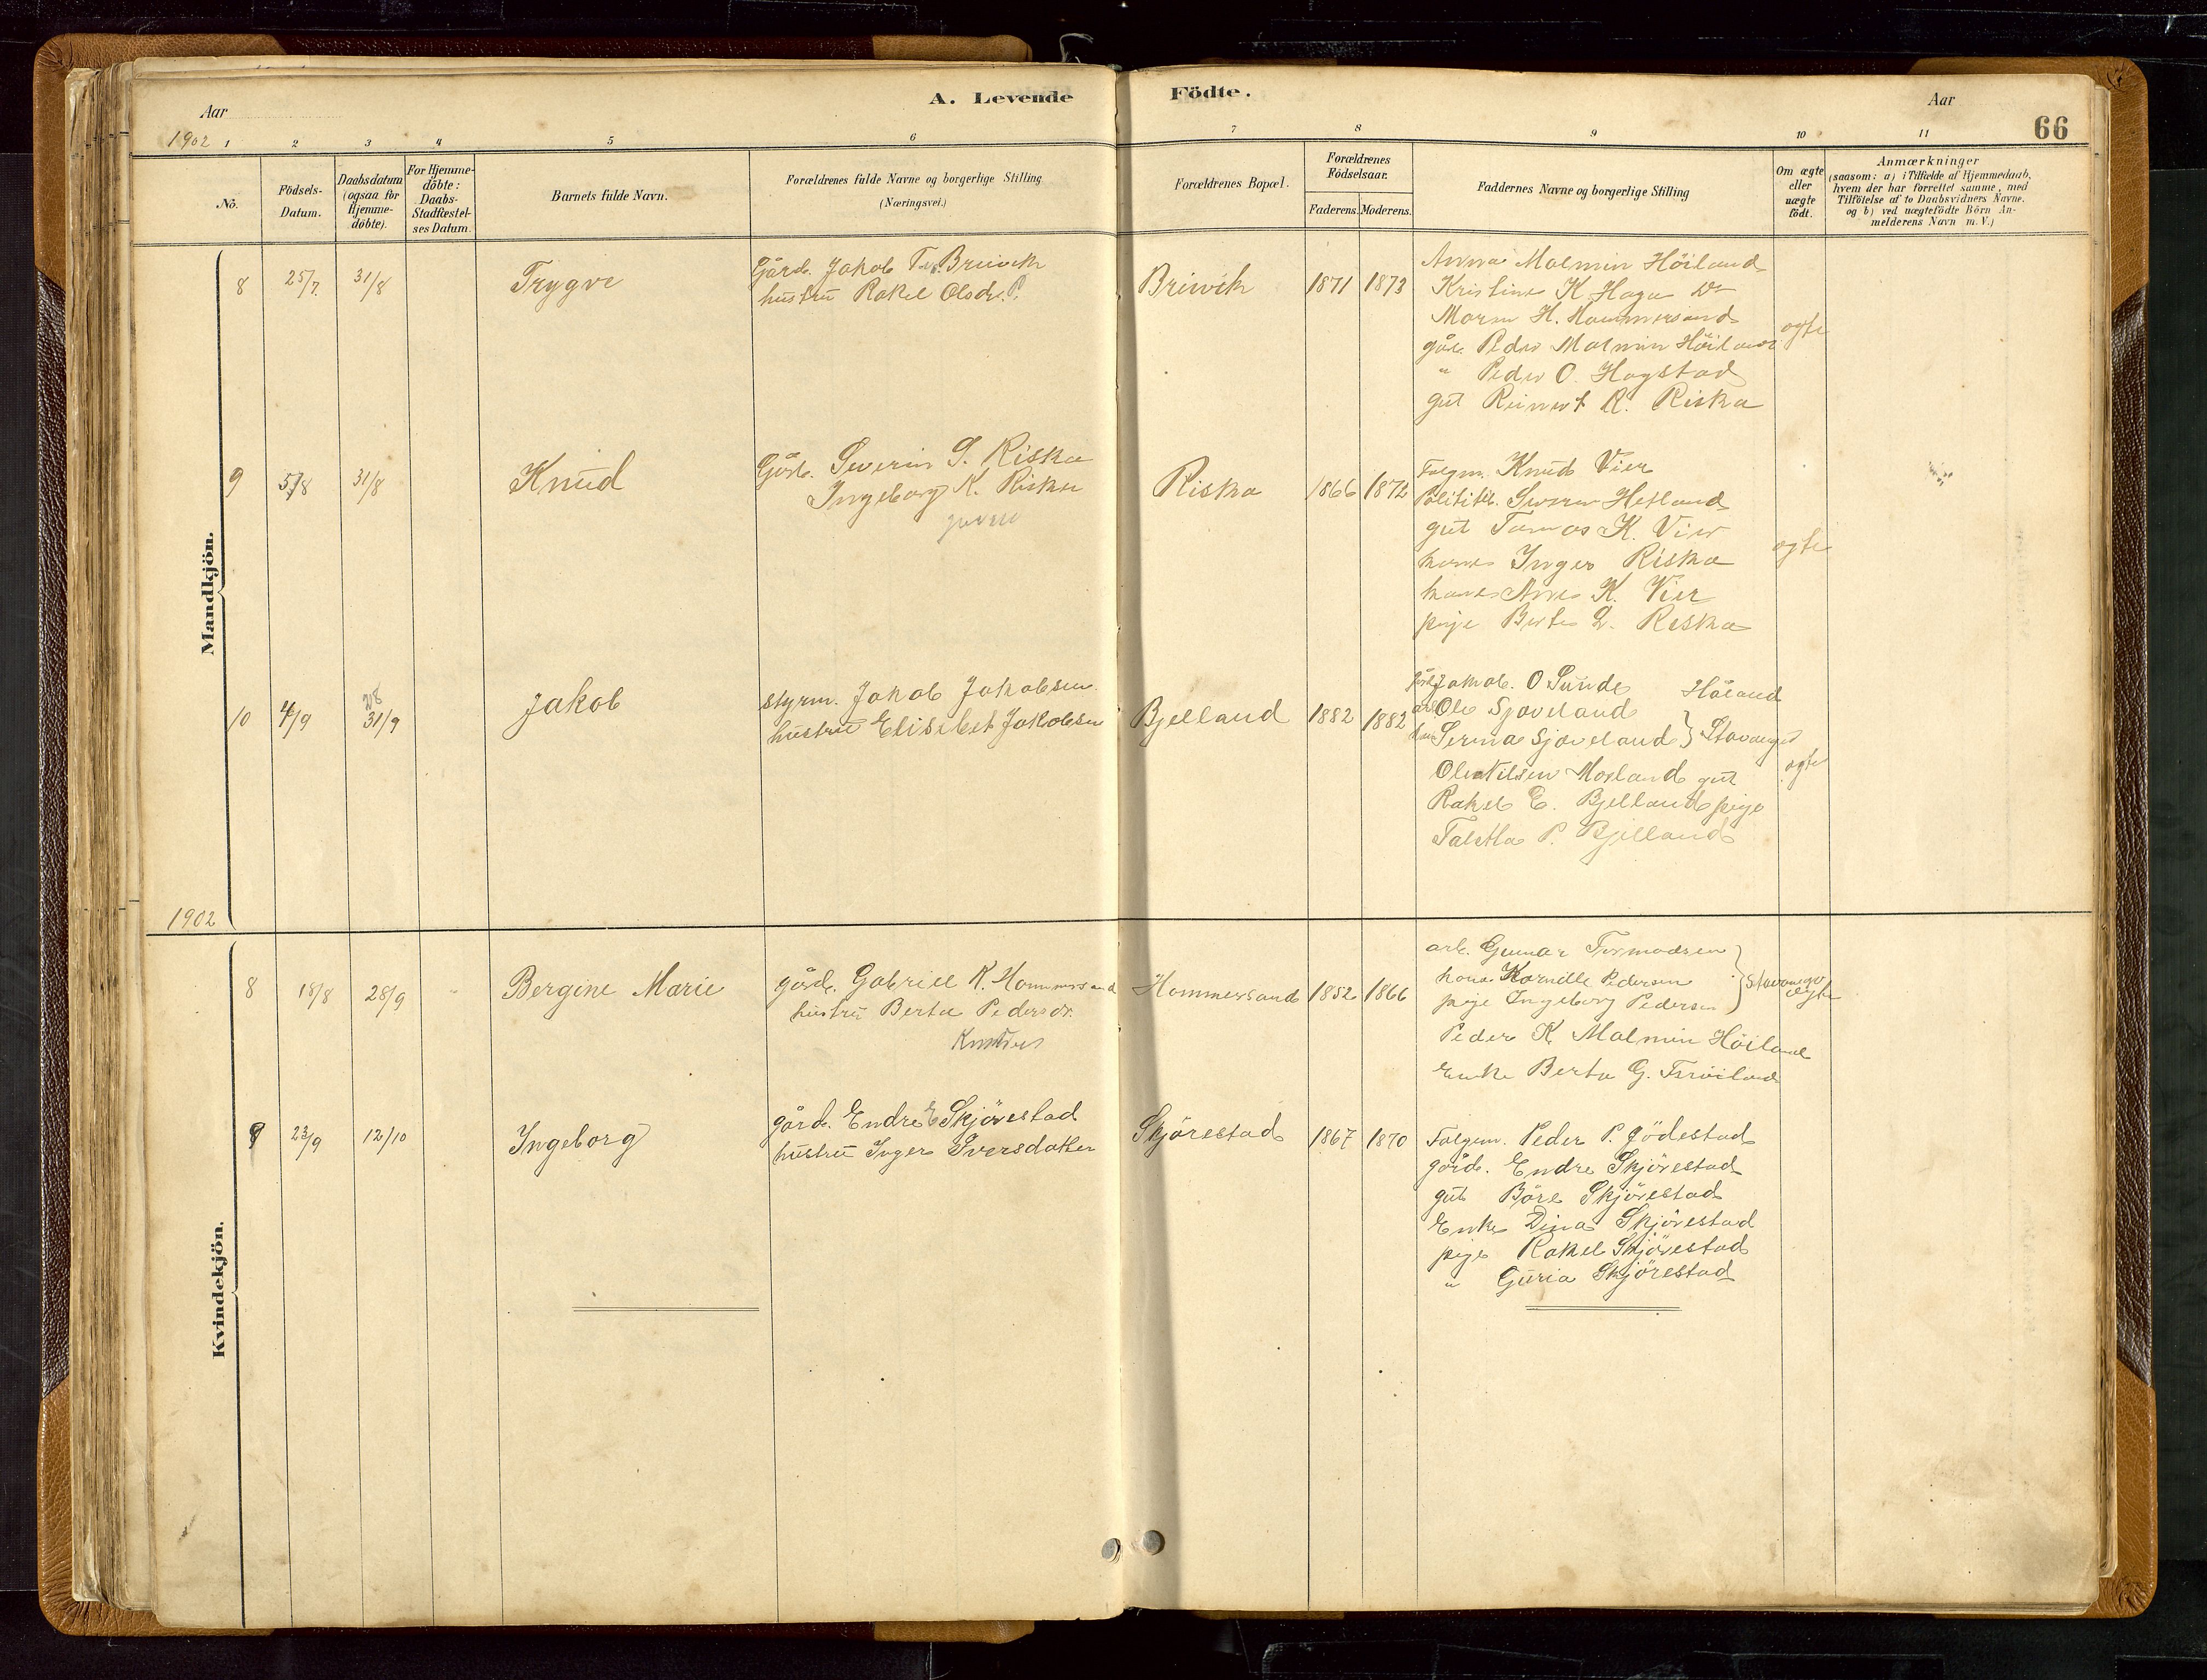 A. Levende Födte.
Aar
1902
Aar
66
1 2 3 4 5 6 7 8 9 10 11
No.
Födsels-Datum.
Daabsdatum (ogsaa for Hjemme-döbte).
For Hjemme-döbte: Daabs-Stadfæstel-ses Datum.
Barnets fulde Navn.
Forældrenes fulde Navne og borgerlige Stilling
(Næringsvei.)
Forældrenes Bopæl.
Forældrenes Födselsaar.
Faderens. Moderens.
Faddernes Navne og borgerlige Stilling
Om ægte eller uægte födt.
Anmærkninger
(saasom: a) i Tilfælde af Hjemmedaab,
hvem der har forrettet samme, med
Tilföielse af to Daabsvidners Navne.
og b) ved uægtefödte Börn An-
melderens Navn m. V.)
Mandkjön.
8 25/7. 31/8 Trygve
Gård. Jakob T. Breivik
hustru Rakel Olsdr.
Breivik 1871 1873
Anna Malmin Höiland
Kristine K Haga
Maren H. Hammersand
går. Peder Malmin Höiland
" Peder O. Hogstad
gut Reinert R. Riska
ægte
9 5/8 31/8 Knud
Gård. Severin S. Riska
Ingeborg K. Riska
Riska 1866 1872
Folgm. Knud Vier
Politib. Severin Hetland
gut Tomas K. Vier
kone Inger Riska
kone Ane K. Vier
pige Berte L. Riska
ægte
10 4/9 31/9 Jakob
28
styrm. Jakob Jakobsen
hustru Elisebet Jakobsen
Bjelland 1882 1882
Jakob. O Sunde Höland
Ole Sjoveland
Serina Sjoveland } Stavanger
Ole Nilsen Morland gut
Rakel E. Bjelland pige
Taletta P. Bjelland
ægte
1902
Kvindekjön.
8 18/8 28/9 Bergine Marie
gård. Gabriel K. Hommersand
hustru Berta Pedersdr.
Hommersand 1852 1866
arb. Gunnar Tormodsen
kone Kornelle Pedersen
pige Ingeborg Pedersen } Stavanger
Peder K Malmin Höiland
Enke Berta G. Tröiland
ægte
9 23/9 12/10 Ingeborg
gård. Endre E Skjörestad
hustru Inger Iversdatter
Skjörestad 1867 1870
Folgem. Peder P. Jödestad
gård. Endre Skjörestad
gut Böre Skjörestad
Enke Dina Skjörestad
pige Rakel Skjörestad
" Guria Skjörestad